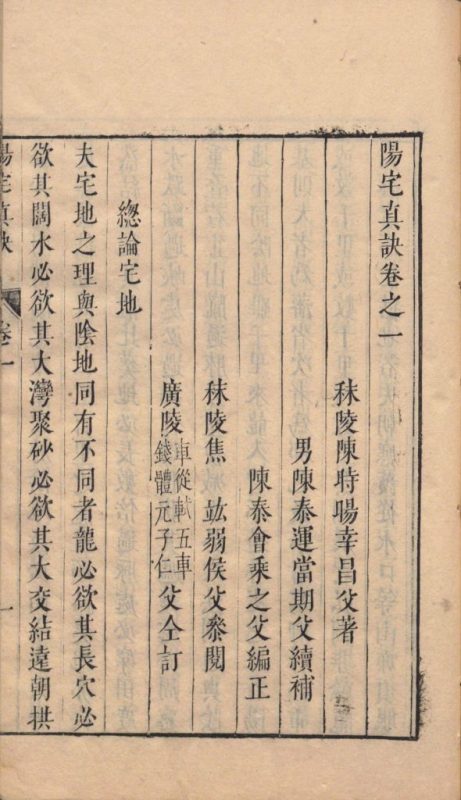 陽宅真訣卷之一
秣陵陳時暘幸昌父著
男陳泰運當期父續補
陳泰會乗之父編正
秣陵焦竑弱侯父叅閱
廣陵
車從軾五車
錢體元子仁
父仝訂
總論宅地
夫宅地之理與陰地同有不同者龍必欲其長穴必
欲其闊水必欲其大灣聚砂必欲其大交結遠朝拱
陽宅真訣
卷一
一